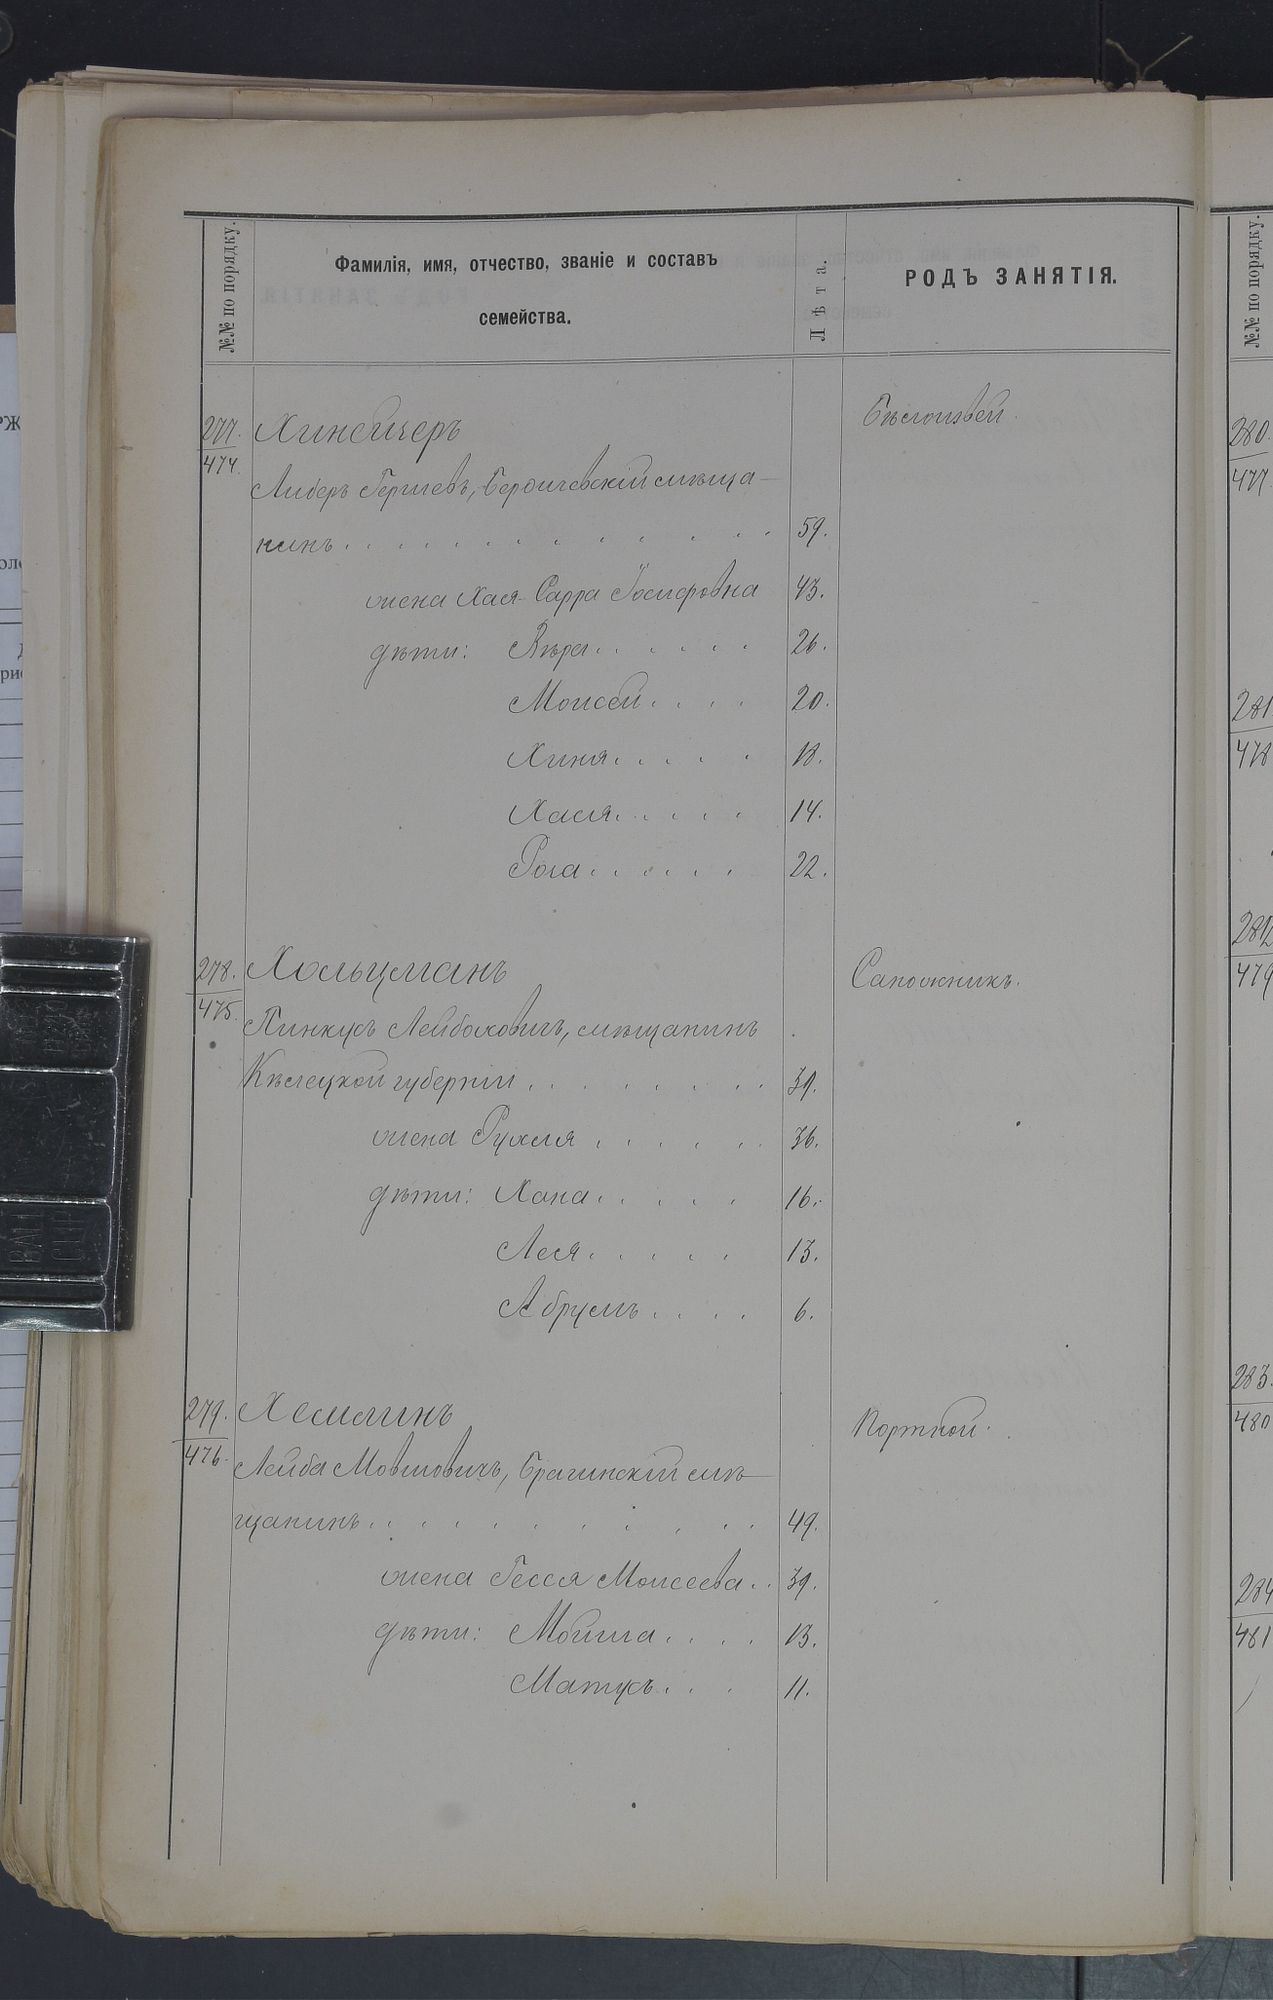 №№ по порядку.
Фамилія, имя, отчество, званіе и составъ
семейства.
Лѣта.
РОДЪ ЗАНЯТІЯ.
277.
474.
Хинчеръ
Бѣлошвей.
Либеръ Гершевъ, Бердичевскій мѣща-
нинъ . . . . . . . . . . . . 59.
жена Хася-Сарра Іосифовна 43.
дѣти: Вѣра . . . . . 26.
Моисей . . . . 20.
Хиня . . . . . 18.
Хася . . . . . 14.
Роза . . . . . 22.
278.
475.
Хольцманъ
Сапожникъ.
Пинкусъ Лейбоховичъ, мѣщанинъ
Кѣлецкой губерніи . . . . . . . . 39.
жена Рухля . . . . . 36.
дѣти: Хана . . . . . 16.
Леся . . . . . 13.
Абрумъ . . . . 6.
279.
476.
Хемлинъ
Портной.
Лейба Мовшовичъ, Брагинскій мѣ-
щанинъ . . . . . . . . . . . 49.
жена Гесся Моисеева . . 39.
дѣти: Мовша . . . . 13.
Матусъ . . . 11.
№№ по порядку.
280.
477.
281
478
282
479
283.
480
284
481